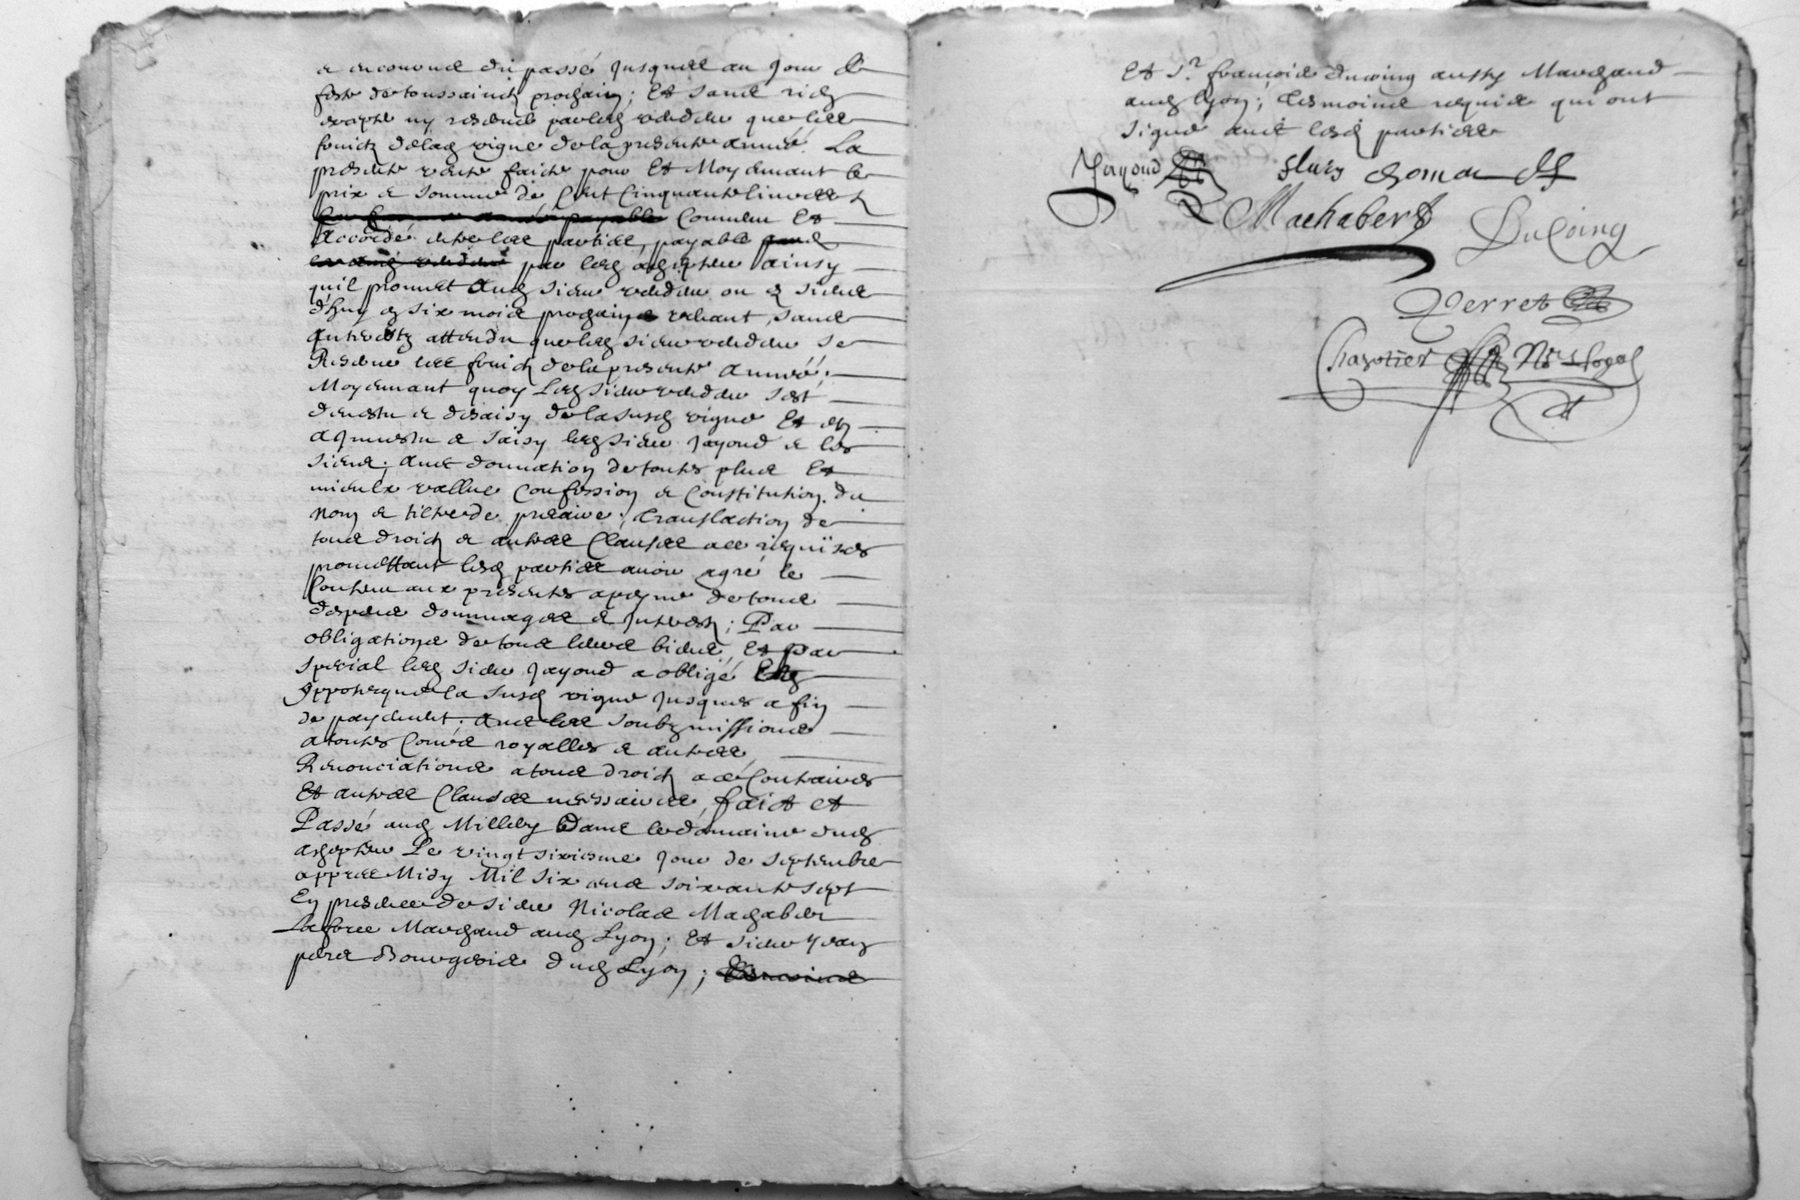 et encourus du passé jusques au jour et
feste de toussainctz prochain; Et sans rien
exepter ny reserver par led vendeur que les
fruictz de lad vigne de la presente année. La
presente vente faicte pour Et Moyenant le
prix et somme de Cent Cinquante livres
payable Convenu Et
Accordé entre les parties, payable
par led achepteur ainsy
qu'il promet aud sieur vendeur ou es siens
d'huy en six mois prochain venant, sans
Interestz attendu que led sieur vendeur se
Reserve les fruictz de la presente année;
Moyenant quoy Led sieur vendeur s'est
devestu et desaisy de la susd vigne Et en
a Jnvestu et saisy led sieur Jayond et les
siens; avec donnation de toutes plus Et
mieulx vallue Confession et Constitution du
nom et tiltre de precaire; translaction de
tous droictz et autres Clauses a ce requises
promettant lesd parties avoir agré le
Contenu aux presentes a peyne de tous
despens dommages et Jnterestz; Par
obligations de tous leurs biens, Et par
special led sieur Jayond a obligé Et
Yppotequé la susd vigne Jusques a fin
de payement; Avec les soubzmissions
a toutes Cours royalles et autres,
Renonciations a tous droictz a ce Contraires
Et autres Clauses necessaires, faict et
Passé aud Millery Dans le domaine dud
achepteur Le vingt sixiesme jour de septembre
appres Midy Mil six cens soixante sept
En presence de sieur Nicolas Machabert
Marchand aud Lyon; Et sieur Yvan
perret Bourgeois dud Lyon;
Et Sr. francois ducoing aussy Marchand
aud Lyon; tesmoins requis qui ont
signé avec lesd parties
Jayond
Machabert
DuCoing
Perret
Chazottier